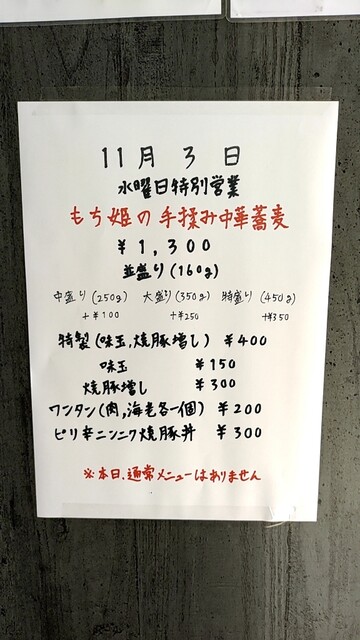 11月3日
水曜日特別営業
もち姫の手揉み中華蕎麦
¥1,300
並盛り(160g)
中盛り(250g) 大盛り(350g) 特盛り(450g)
+¥100 +¥250 +¥350
特製(味玉,焼豚増し) ¥400
味玉 ¥150
焼豚増し ¥300
ワンタン(肉,海老各一個) ¥200
ピリ辛ニンニク焼豚丼 ¥300
※本日、通常メニューはありません